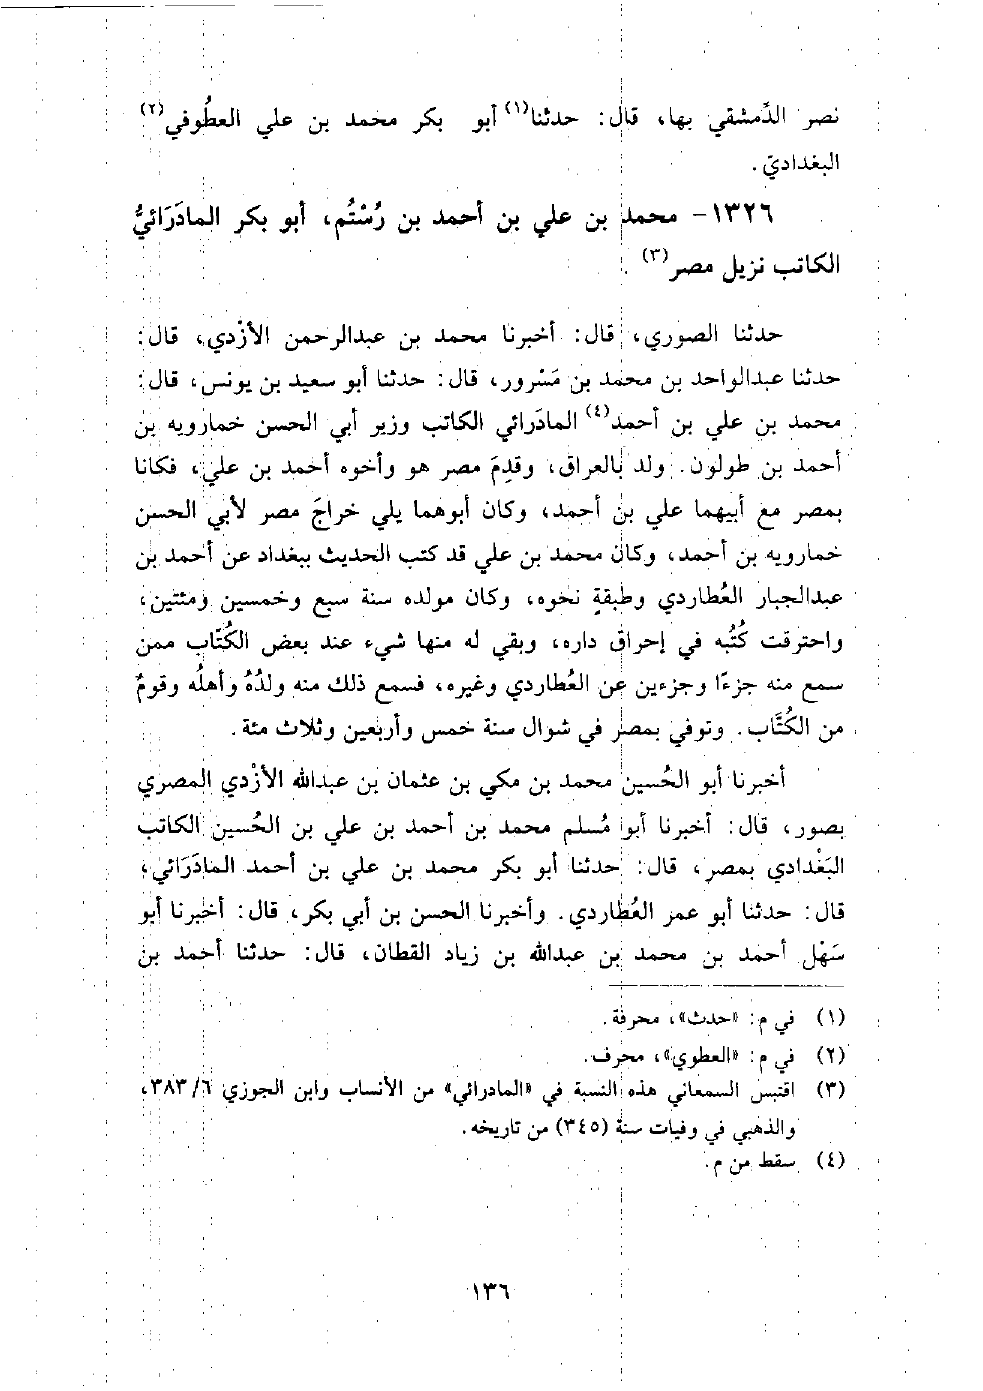 نصر الدِّمشقي بها، قال: حدثنا(١) أبو بكر محمد بن علي العطُوفي(٢)
البغداديّ.
١٣٢٦- محمد بن علي بن أحمد بن رُسْتُم، أبو بكر المادَرَائيُّ
الكاتب نزيل مصر(٣).
حدثنا الصوري، قال: أخبرنا محمد بن عبدالرحمن الأزْدي، قال:
حدثنا عبدالواحد بن محمد بن مَسْرور، قال: حدثنا أبو سعيد بن يونس، قال:
محمد بن علي بن أحمد(٤) المادَرائي الكاتب وزير أبي الحسن خمارويه بن
أحمد بن طولون. ولد بالعراق، وقدِمَ مصر هو وأخوه أحمد بن علي، فكانا
بمصر مع أبيهما علي بن أحمد، وكان أبوهما يلي خراجَ مصر لأبي الحسن
خمارويه بن أحمد، وكان محمد بن علي قد كتب الحديث ببغداد عن أحمد بن
عبدالجبار العُطاردي وطبقةٍ نحوه، وكان مولده سنة سبع وخمسين ومئتين،
واحترقت كُتُبه في إحراق داره، وبقي له منها شيء عند بعض الكُتّاب ممن
سمع منه جزءًا وجزءين عن العُطاردي وغيره، فسمع ذلك منه ولدُهُ وأهلُه وقومٌ
من الكُتَّاب. وتوفي بمصر في شوال سنة خمس وأربعين وثلاث مئة.
أخبرنا أبو الحُسين محمد بن مكي بن عثمان بن عبدالله الأزْدي المصري
بصور، قال: أخبرنا أبو مُسلم محمد بن أحمد بن علي بن الحُسين الكاتب
البَغْدادي بمصر، قال: حدثنا أبو بكر محمد بن علي بن أحمد المادَرَائي،
قال: حدثنا أبو عمر العُطاردي. وأخبرنا الحسن بن أبي بكر، قال: أخبرنا أبو
سَهْل أحمد بن محمد بن عبدالله بن زياد القطان، قال: حدثنا أحمد بن
(١) في م: «حدث»، محرفة.
(٢) في م: «العطوي»، محرف.
(٣) اقتبس السمعاني هذه النسبة في «المادرائي» من الأنساب وابن الجوزي ٦/ ٣٨٣،
والذهبي في وفيات سنة (٣٤٥) من تاريخه.
(٤) سقط من م.
١٣٦